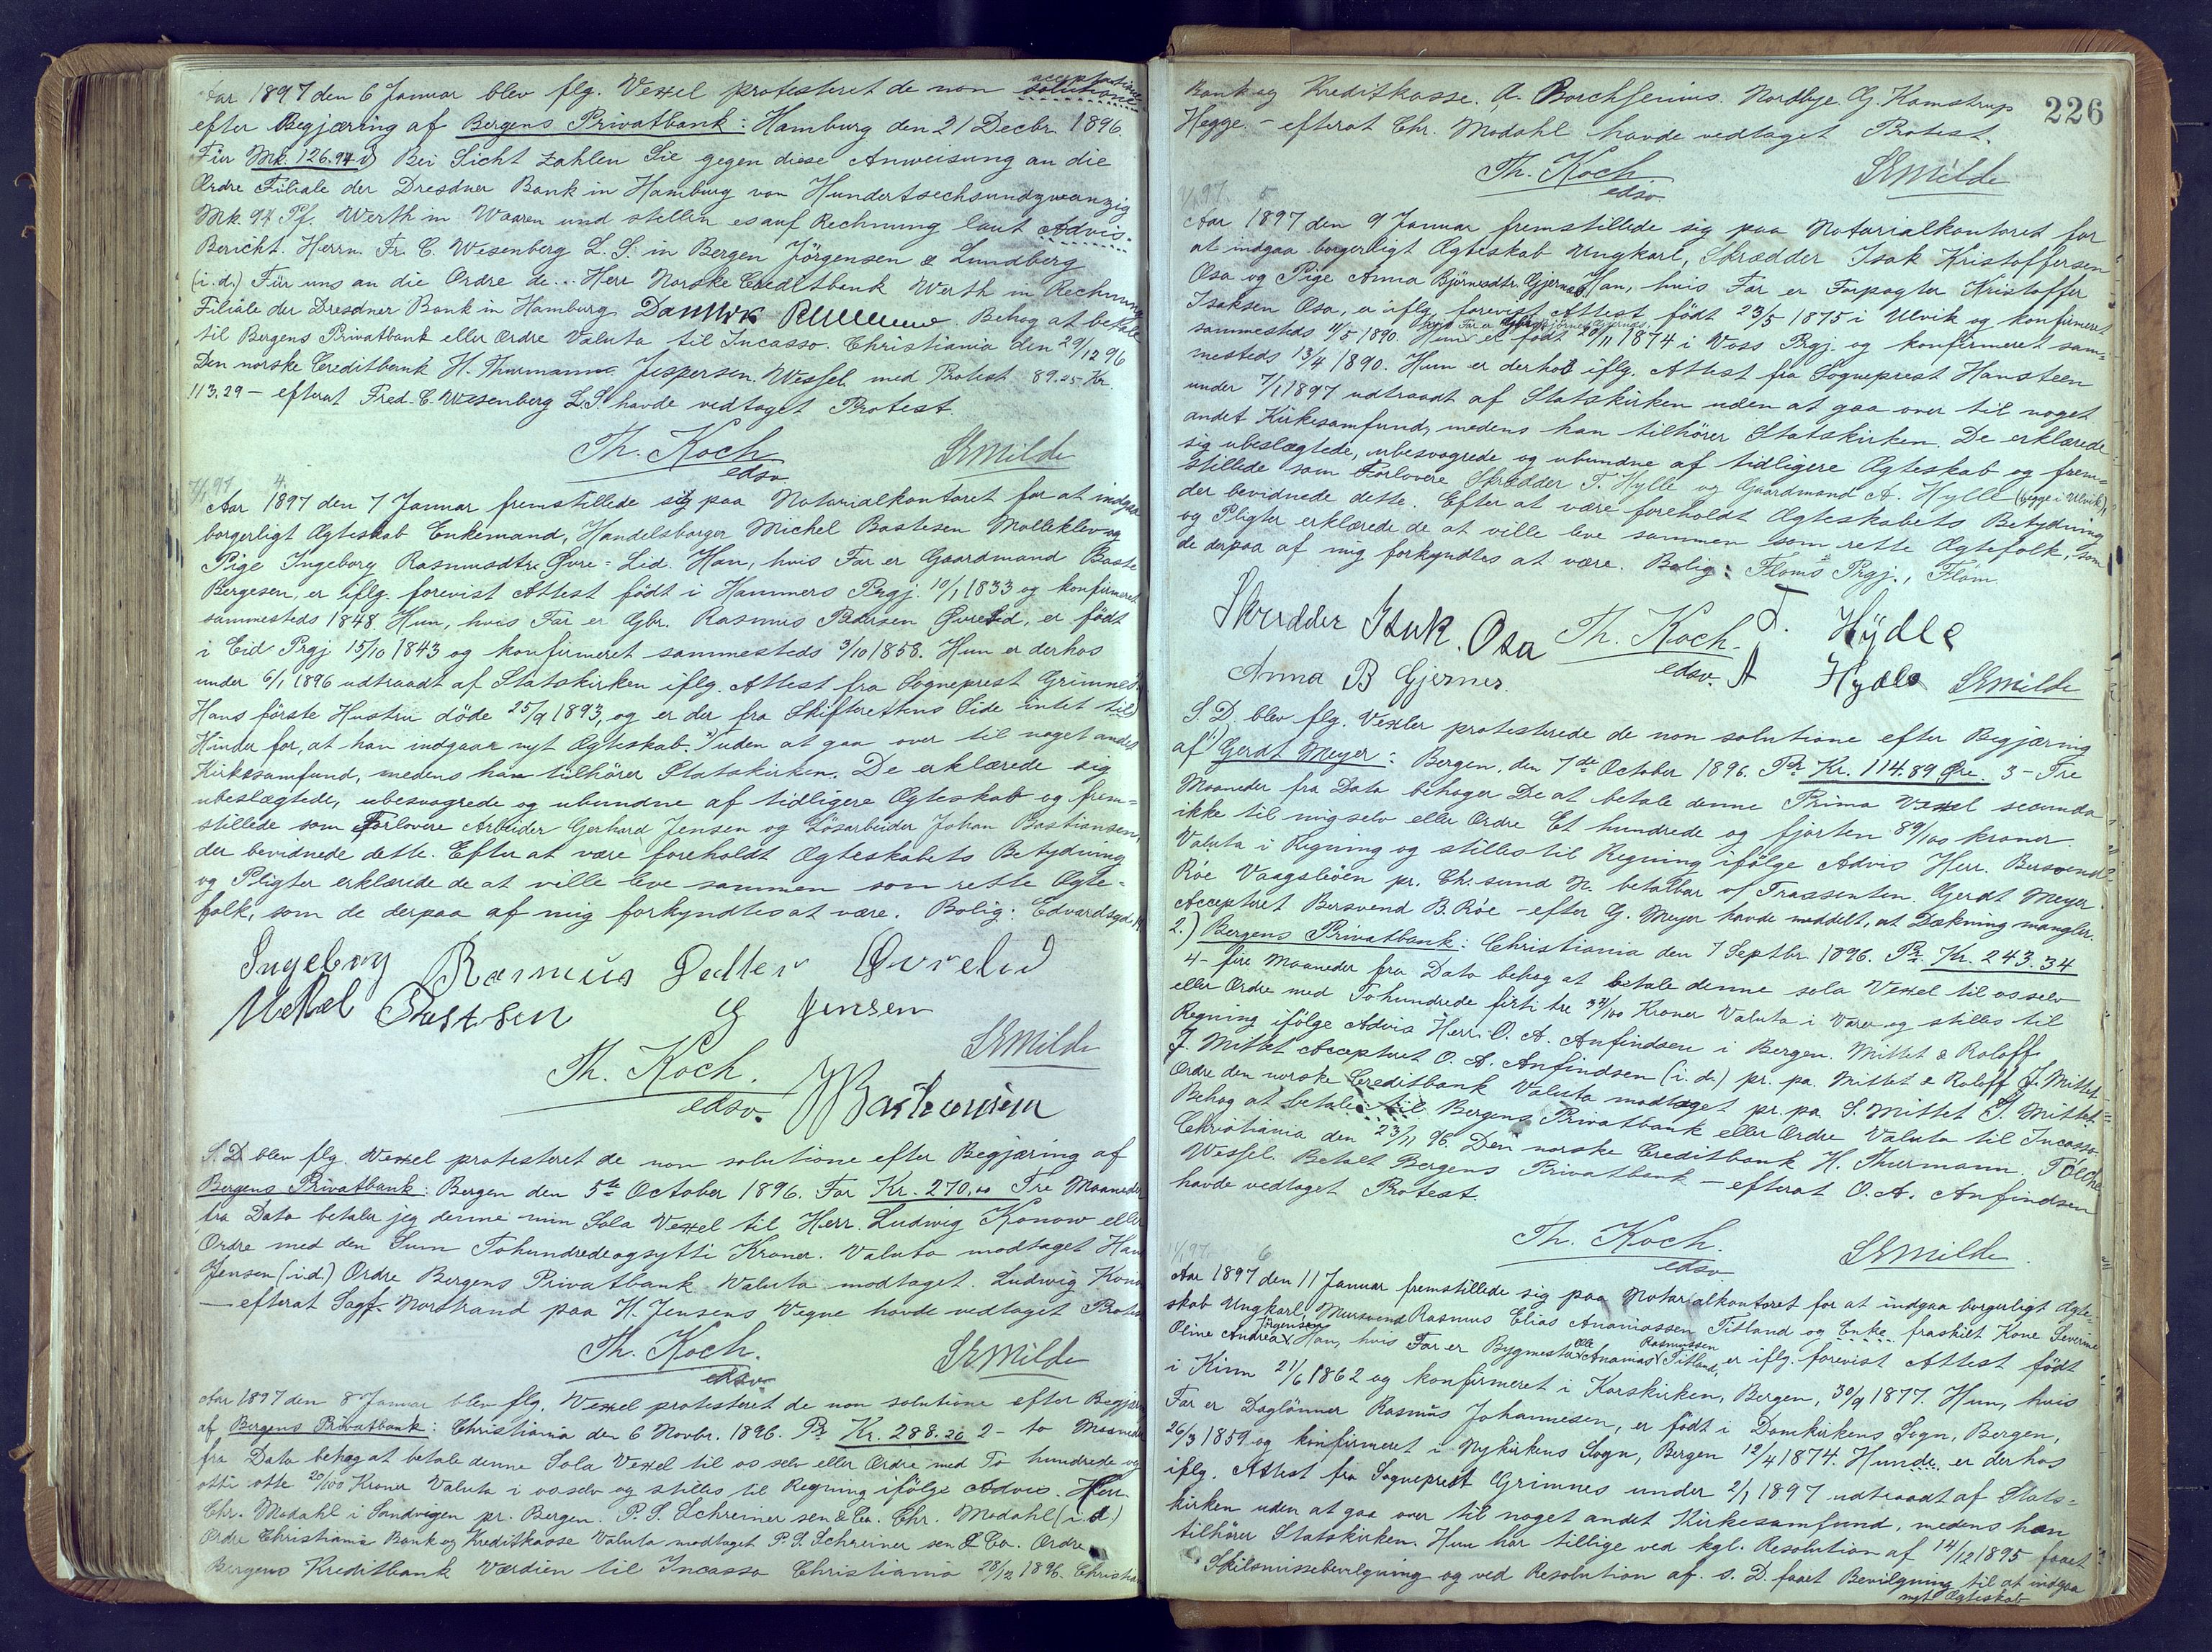 Aar 1897 den 6 Januar blev flg. Vexel protesteret de non solutione acceptatione
efter Begjæring af Bergens Privatbank: Hamburg den 21 Decbr. 1896.
Für Mk. 126.94 Bei Sicht zahlen Sie gegen diese Anweisung an die
Ordre Filiale der Dresdner Bank in Hamburg von Hundertsechsundzwanzig
Mk. 94 Pf. Werth in Waaren und stellen es auf Rechnung laut Advis
Bericht. Herrn Fr. C. Wesenberg L. S. in Bergen Jörgensen & Lundberg
(i. d.) Für uns an die Ordre de... Herr Norske Creditbank Werth in Rechnung
Filiale der Dresdner Bank in Hamburg. Behag at betale
til Bergens Privatbank eller Ordre Valuta til Incasso. Christiania den 29/12 96
Den norske Creditbank H. Thurmann. Jespersen. Wessel med Protest 89.25 Kr.
113.29 – efterat Fred. C. Wesenberg L. S. havde vedtaget Protest
Th. Koch
edsv. SEMilde
7/1 97 4.
Aar 1897 den 7 Januar fremstillede sig paa Notarialkontoret for at indgaa
borgerligt Ægteskab Enkemand, Handelsborger Michel Bastesen Molleklev og
Pige Ingeborg Rasmusdtr. Øvre-Lid. Han, hvis Far er Gaardmand Baste
Bergesen, er iflg. forevist Attest født i Hammers Prgj. 10/1 1833 og konfirmeret
sammesteds 1848. Hun, hvis Far er Gbr. Rasmus Pedersen Øvrelid, er født
i Eid Prgj. 15/10 1843 og konfirmeret sammesteds 3/10 1858. Hun er derhos
under 6/1 1896 udtraadt af Statskirken iflg. Attest fra Sogneprest Grimnes.
Hans förste Hustru döde 25/9 1893, og er der fra Skifterettens Side intet til
Hinder for, at han indgaar nyt Ægteskab. uden at gaa over til noget andet
Kirkesamfund, medens han tilhörer Statskirken. De erklærede sig
ubeslægtede, ubesvogrede og ubundne af tidligere Ægteskab og frem-
stillede som Forlovere Arbeider Gerhard Jensen og Lösarbeider Johan Bastiansen,
der bevidnede dette. Efter at være foreholdt Ægteskabets Betydning
og Pligter erklærede de at ville leve sammen som rette Ægte-
folk, som de derpaa af mig forkyndtes at være. Bolig: Edvardsgd. 14
Ingeborg Rasmus Datter Øvrelid
Mikal Bastesen G Jensen
Th. Koch. SEMilde
edsv. J Bastiansen
S. D. blev flg. Vexel protesteret de non solutione efter Begjæring af
Bergens Privatbank: Bergen den 5te October 1896. For Kr. 270,00 Tre Maaneder
fra Dato betaler jeg denne min Sola Vexel til Herr. Ludwig Konow eller
Ordre med den Sum Tohundredeogsytti Kroner. Valuta modtaget Hans
Jensen (i.d.) Ordre Bergens Privatbank Valuta modtaget. Ludwig Konow
– efterat Sagf. Norstrand paa H. Jensens Vegne havde vedtaget Protest
Th. Koch. SEMilde
edsv.
Aar 1897 den 8 Januar blev flg. Vexel protesteret de non solutione efter Begjæring
af Bergens Privatbank: Christiania den 6 Novbr. 1896. Pr Kr. 288.20 2 – to Maaneder
fra Dato behag at betale denne Sola Vexel til os selv eller Ordre med To hundrede og
otti otte 20/100 Kroner Valuta i os selv og stilles til Regning ifölge Advis. Herr.
Chr. Modahl i Sandvigen pr. Bergen. P. S. Schreiner sen & Co. Chr. Modahl (i. d.)
Ordre Christiania Bank og Kreditkasse Valuta modtaget P. S. Schreiner sen & Co. Ordre
Bergens Kreditbank Værdien til Incasso Christiania 28/12 1896. Christiania
226
Bank og Kreditkasse. A. Borchsenius. Nordbye. G. Kamstrup
Hegge. – efterat Chr. Modahl havde vedtaget Protest.
Th. Koch SEMilde
edsv.
9/1 97. 5
Aar 1897 den 9 Januar fremstillede sig paa Notarialkontoret for
at indgaa borgerligt Ægteskab Ungkarl, Skrædder Isak Kristoffersen
Osa og Pige Anna Björnsdtr. Gjernes. Han, hvis Far er Forpagter Kristoffer
Isaksen Osa, er iflg. forevist Attest född 23/5 1875 i Ulvik og konfirmeret
sammesteds 11/5 1890. Hun er född 20/11 1874 i Voss Prgj. og konfirmeret sam-
mesteds 13/4 1890. Hun er derhos iflg. Attest fra Sogneprest Hansteen
under 7/1 1897 udtraadt af Statskirken uden at gaa over til noget
andet Kirkesamfund, medens han tilhörer Statskirken. De erklærede
sig ubeslægtede, ubesvogrede og ubundne af tidligere Ægteskab og frem-
stillede som Forlovere Skrædder T. Hylle og Gaardmand A. Hylle (begge i Ulvik),
der bevidnede dette. Efter at være foreholdt Ægteskabets Betydning
og Pligter erklærede de at ville leve sammen som rette Ægtefolk, som
de derpaa af mig forkyndtes at være. Bolig: Floms Prgj., Flöm.
Skredder Isak. Osa Th. Koch. T. Hÿdle
Anna B Gjernes. edsv. A Hydle SEMilde
S. D. blev flg. Vexler protesterede de non solutione efter Begjæring
af 1) Gerdt Meyer: Bergen, den 7de October 1896. Pr Kr. 114.89 Øre. 3 – Tre
Maaneder fra Dato behager De at betale denne Prima Vexel secunda
ikke til mig selv eller Ordre Et hundrede og fjorten 89/100 kroner.
Valuta i Regning og stilles til Regning ifölge Advis Herr. Bersvend
Röe Vaagslöen pr. Ch. sund N. betalbar af Trassenten. Gerdt Meyer.
Accepteret Bersvend B. Röe – efter G. Meyer havde meddelt, at Dækning mangler.
2.) Bergens Privatbank: Christiania den 7 Septbr. 1896. Pr. Kr. 243.34
4 – fire Maaneder fra Dato behag at betale denne sola Vexel til os selv
eller Ordre med Tohundrede firti tre 34/100 Kroner Valuta i Varer og stilles til
Regning ifölge Advis Herr. O. A. Anfindsen i Bergen. Mittet & Roloff.
J. Mittet Accepteret O. A. Anfindsen (i. d.) pr. pa. Mittet & Roloff J. Mittet
Ordre den norske Creditbank Valuta modtaget pr. pa S. Mittet J. Mittet.
Behag at betale til Bergens Privatbank eller Ordre Valuta til Incasso
Christiania den 23/11 96. Den norske Creditbank H. Thurmann. Tölche
Wessel. Betalt Bergens Privatbank – efterat O. A. Anfindsen
havde vedtaget Protest.
Th. Koch. SEMilde
edsv
11/1 97. 6.
Aar 1897 den 11 Januar fremstillede sig paa Notarialkontoret for at indgaa borgerligt Ægte-
skab Ungkarl, Mursvend Rasmus Elias Ananiassen Titland og Enke fraskilt Kone Severine
Oline Andrea Jörgensen Han, hvis Far er Bygmester Ole Ananias Rasmussen Titland, er iflg. forevist Attest född
i Kinn 21/6 1862 og konfirmeret i Korskirken, Bergen, 30/9 1877. Hun, hvis
Far er Daglönner Rasmus Johannesen, er född i Domkirkens Sogn, Bergen,
26/3 1859 og konfirmeret i Nykirkens Sogn, Bergen 12/4 1874. Hun er derhos
iflg. Attest fra Sogneprest Grimnes under 2/1 1897 udtraadt af Stats-
kirken uden at gaa over til noget andet Kirkesamfund, medens han
tilhörer Statskirken. Hun har tillige ved kgl. Resolution af 14/12 1895 faaet
Skilsmissebevilgning og ved Resolution af s. D. faaet Bevilgning til at indgaa
nyt Ægteskab